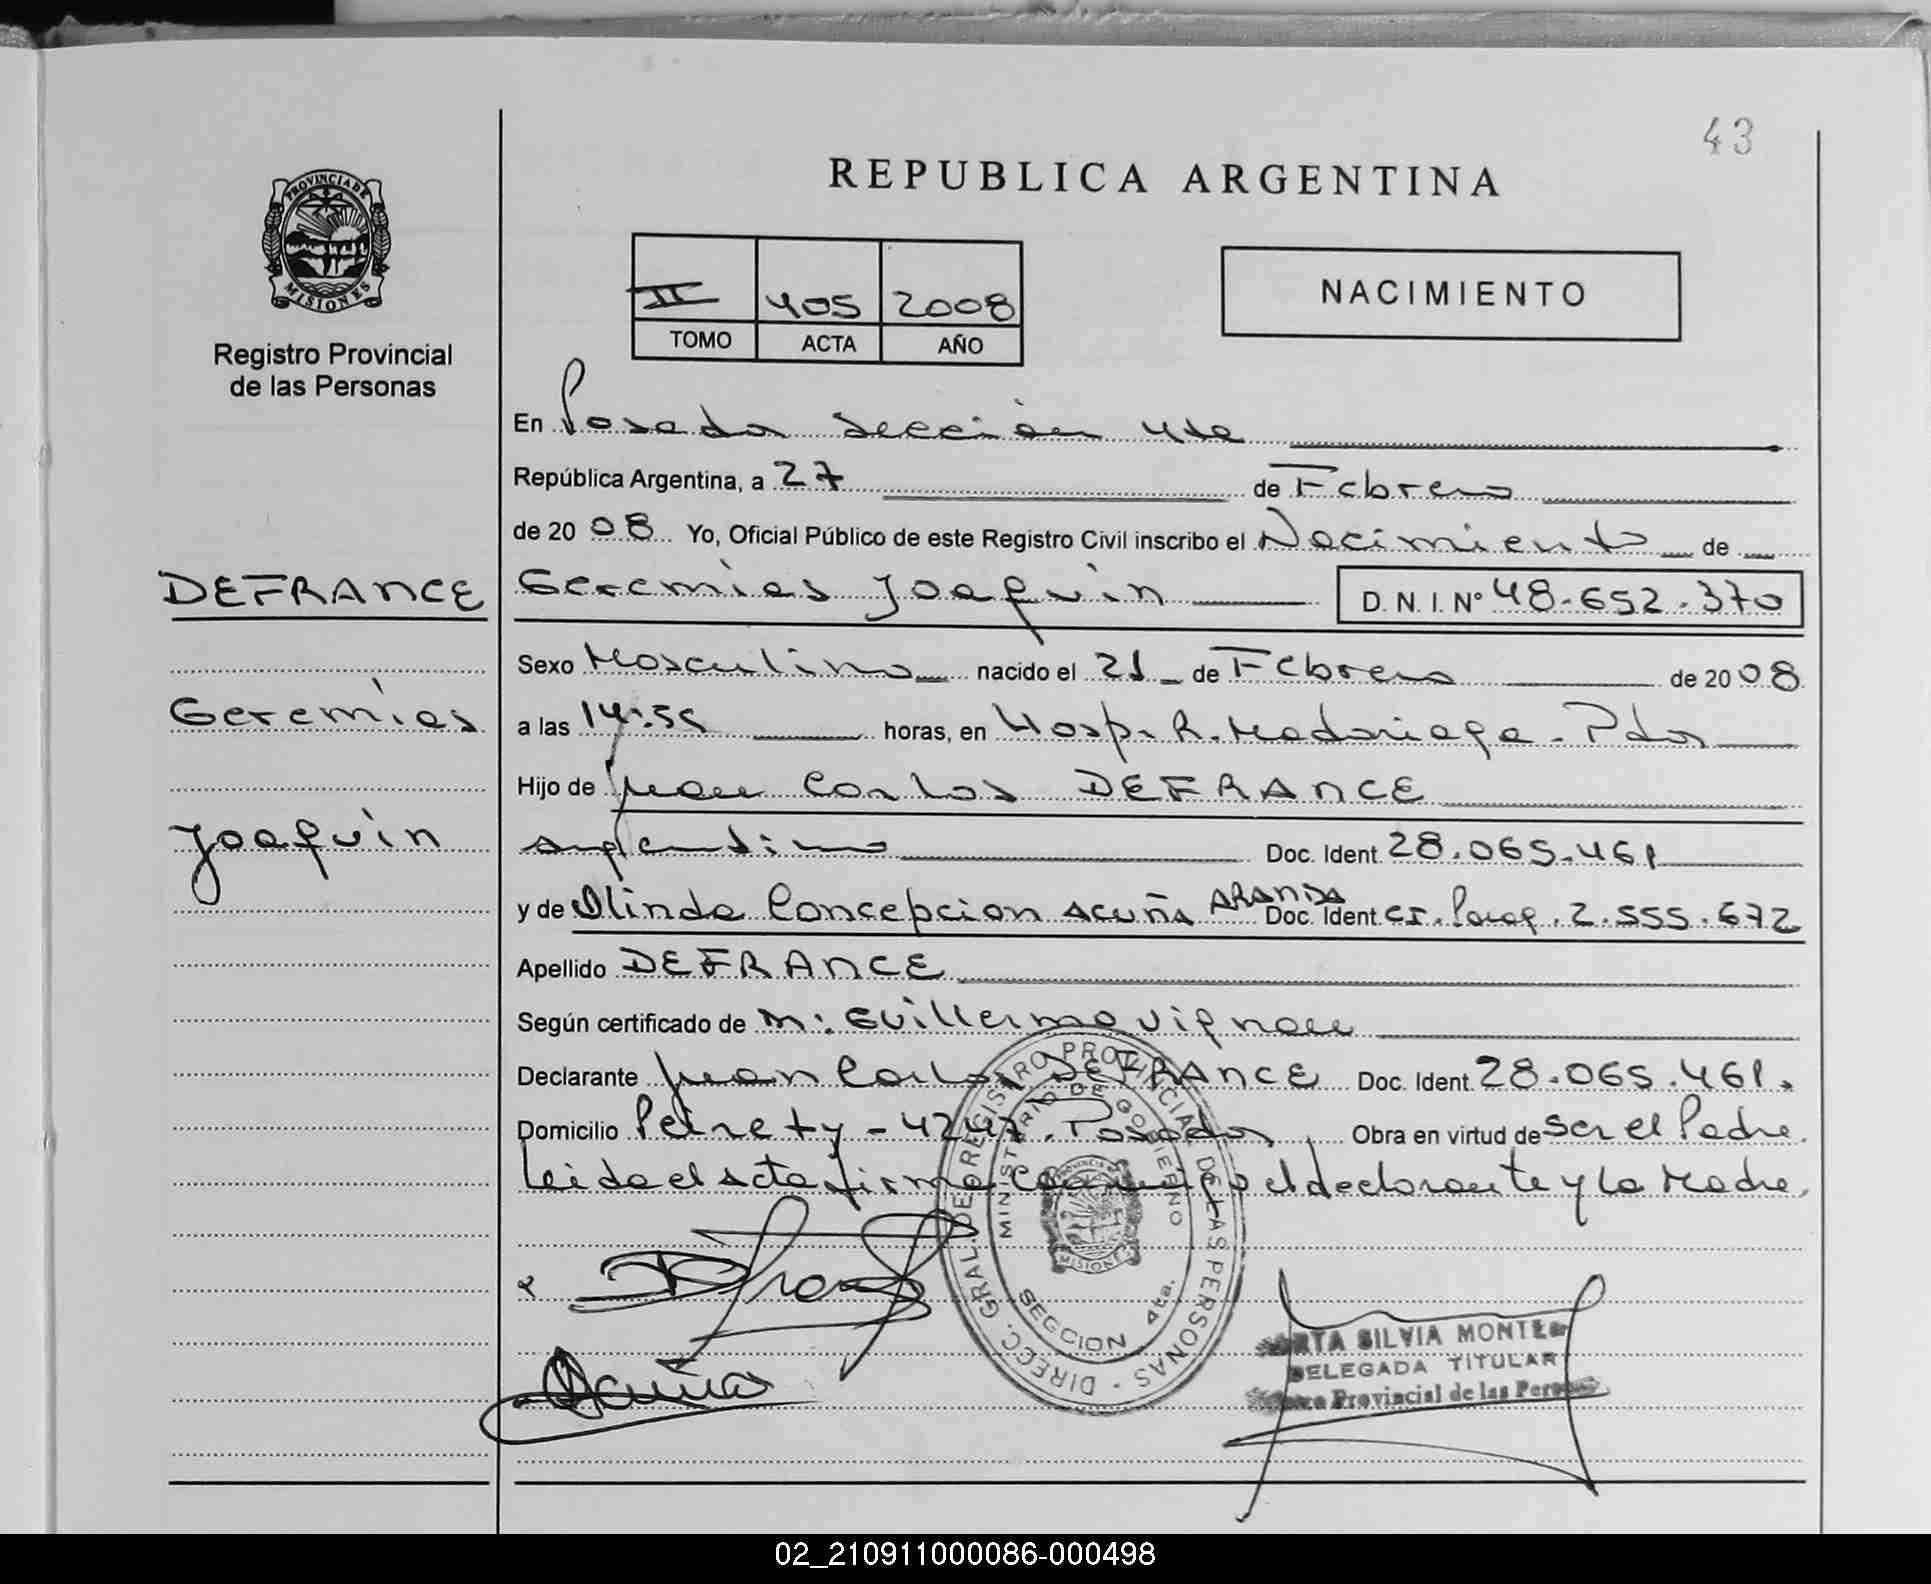 43
REPUBLICA ARGENTINA
PROVINCIA DE
MISIONES
Registro Provincial
de las Personas
II 405 2008
TOMO ACTA AÑO
NACIMIENTO
En Posadas Sección 4ta
República Argentina, a 27 de Febrero
de 20 08 Yo, Oficial Público de este Registro Civil inscribo el Nacimiento de
DEFRANCE
Geremias Joaquin D. N. I. N° 48.652.370
Sexo Masculino nacido el 21 de Febrero de 20 08
Geremias
a las 14:55 horas, en Hosp. R. Madariaga - Pdas
Hijo de Juan Carlos DEFRANCE
Joaquin
argentino Doc. Ident. 28.065.461
y de Olinda Concepcion ACUÑA ARANDA Doc. Ident. CI. Parag. 2.555.672
Apellido DEFRANCE
Según certificado de M: Guillermo Vignau
Declarante Juan Carlos DEFRANCE Doc. Ident. 28.065.461.
Domicilio Peirety - 4247. Posadas Obra en virtud de ser el Padre.
Leida el acta firma conmigo el declarante y la Madre.
DIRECC. GRAL. DE REGISTRO PROVINCIAL DE LAS PERSONAS
MINISTERIO DE GOBIERNO
PROVINCIA DE
MISIONES
SECCION 4ta.
Acuña
SILVIA MONTE
DELEGADA TITULAR
Provincial de las
02_210911000086-000498